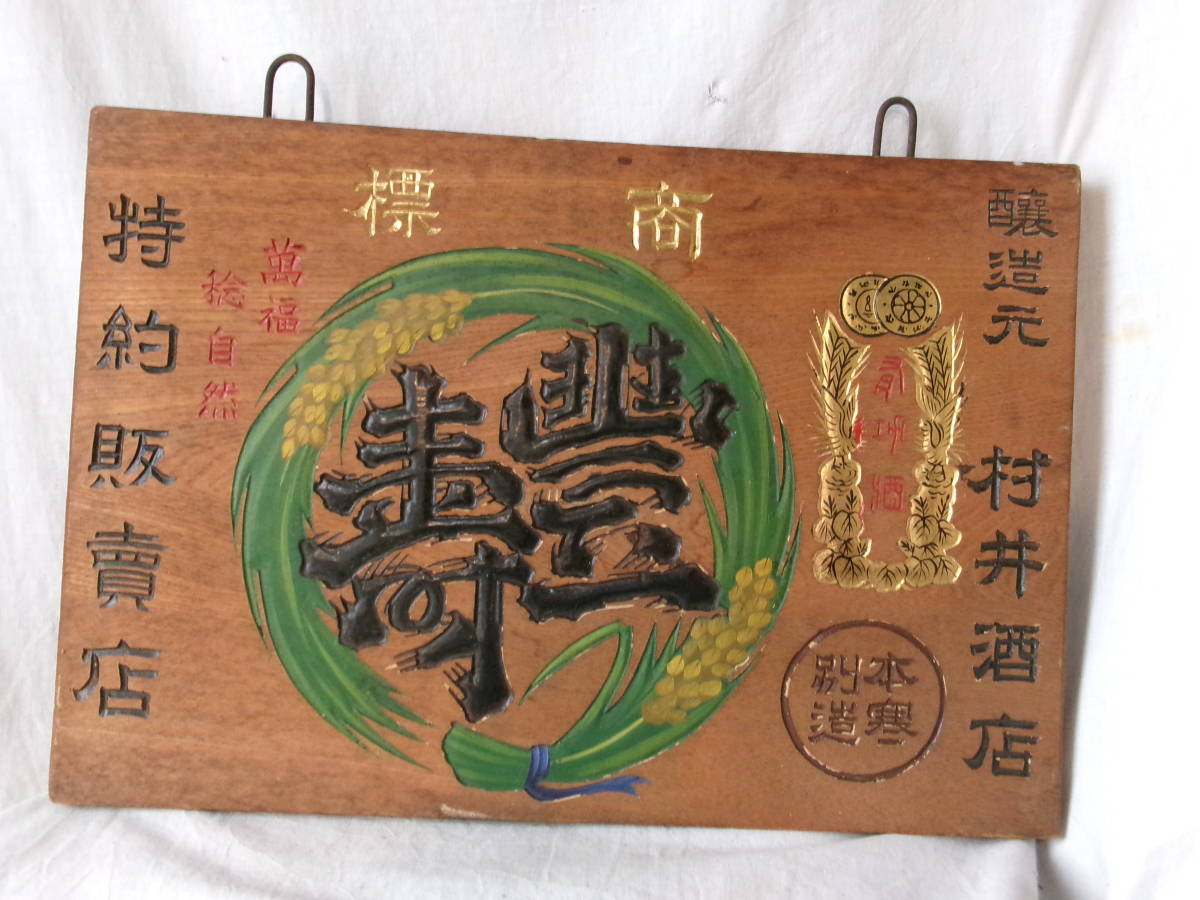 釀造元 村井酒店
商標
有功酒
本寒
別造
豐壽
萬福
稔自然
特約販賣店